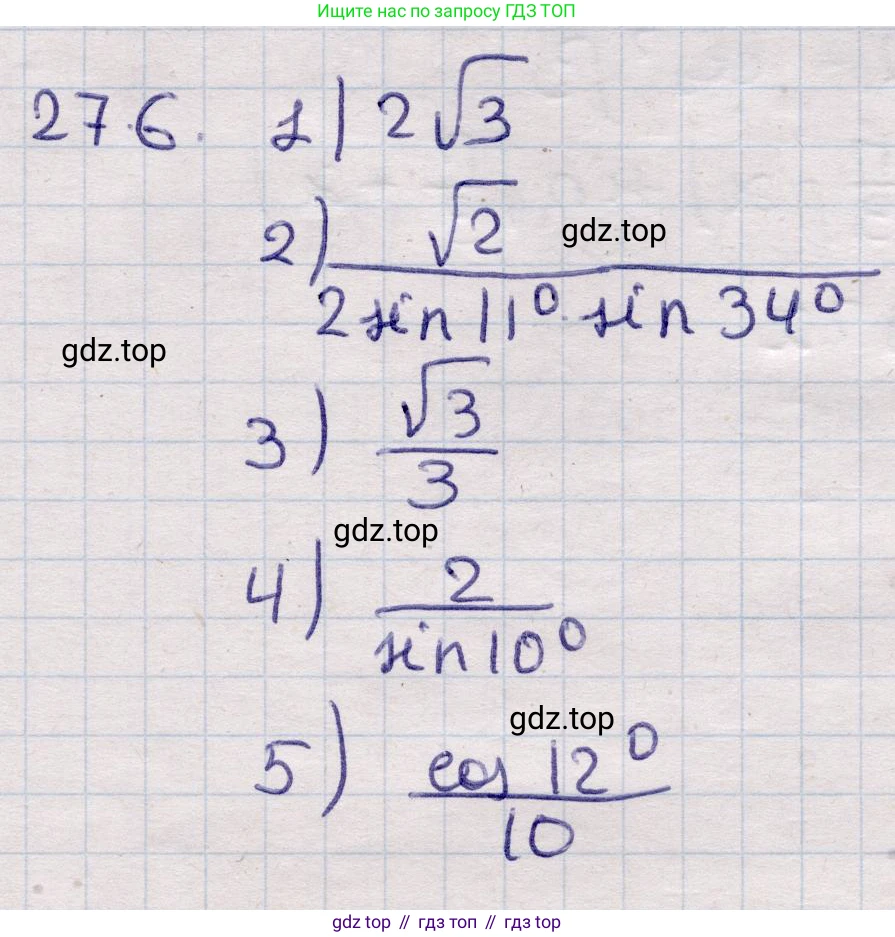 Ищите нас по запросу ГДЗ ТОП
276. 1) 2√3
2) √2
gdz.top
2 sin 11° · sin 34°
gdz.top
3) √3
3
gdz.top
4) 2
sin 10°
gdz.top
5) cos 12°
10
gdz top // гдз топ // гдз top